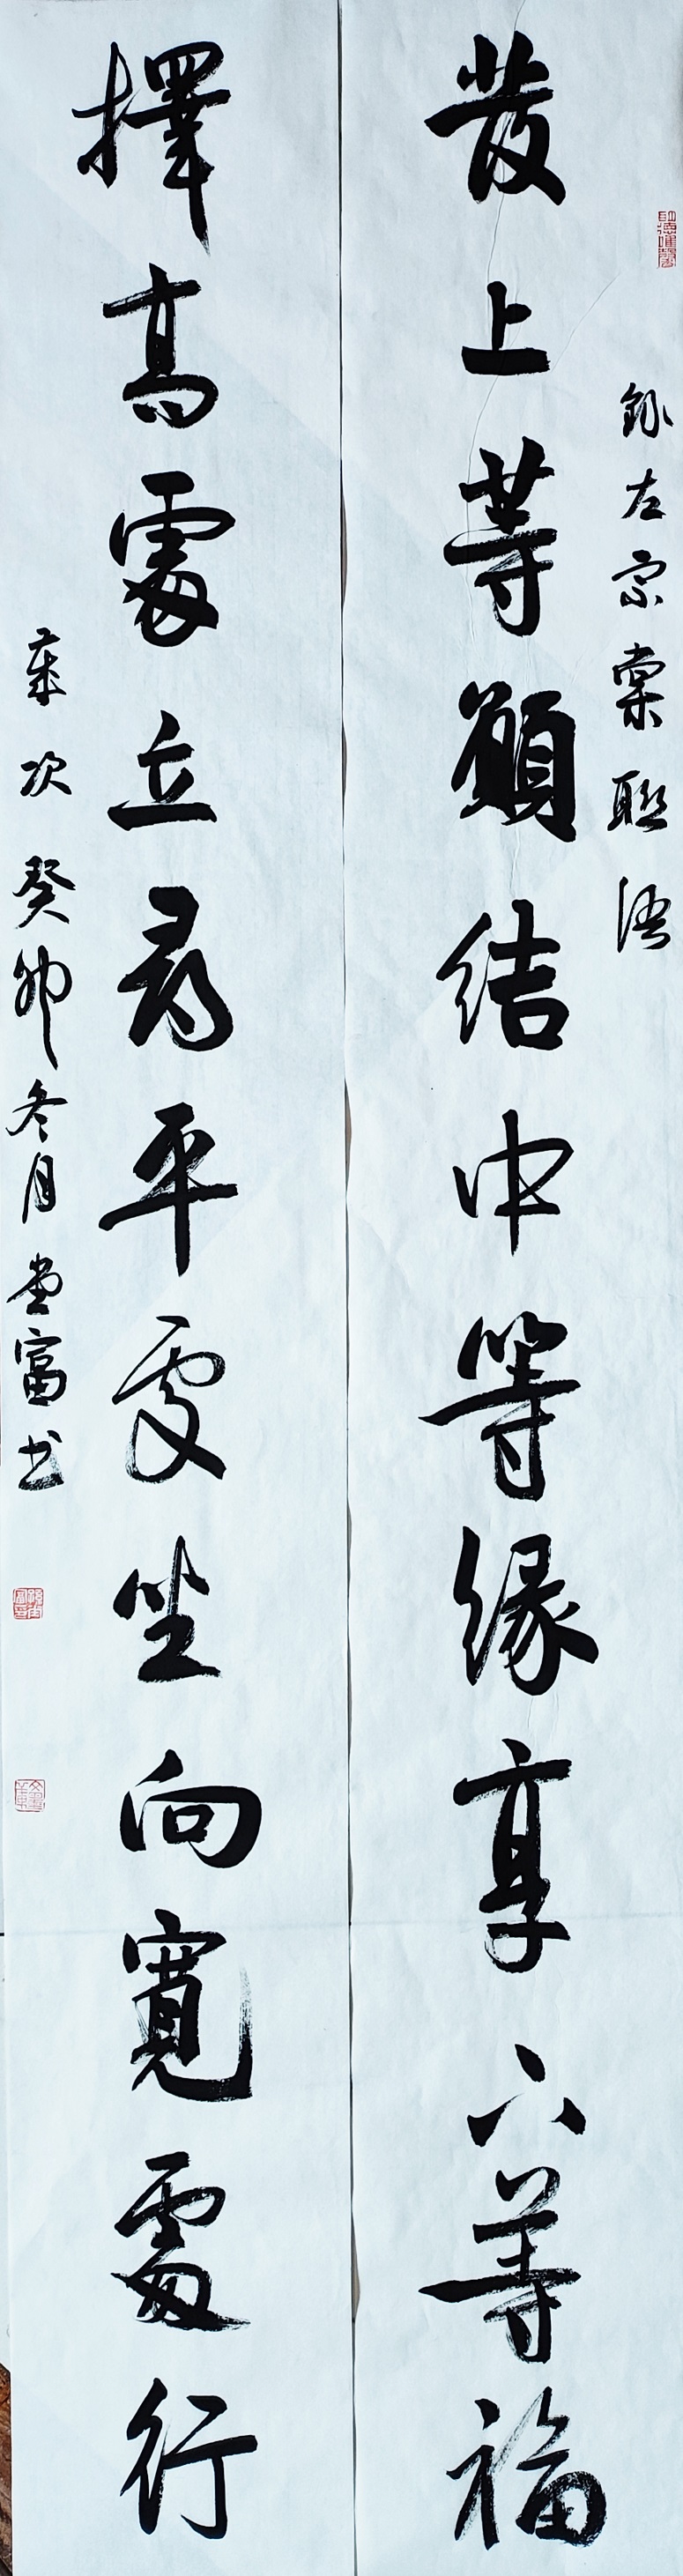 錄左宗棠聯語
發上等願結中等緣享下等福
擇高處立尋平處坐向寬處行
歲次癸卯冬月富书